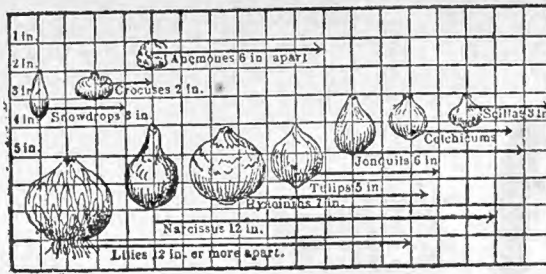 1 in.
2 in.
Anemones 6 in apart
3 in.
Crocuses 2 in.
4 in.
Snowdrops 3 in.
Scillas 3 in
Colchicums
5 in.
Jonquils 6 in
Tulips 5 in
Hyacinths 7 in.
Narcissus 12 in.
Lilies 12 in. or more apart.